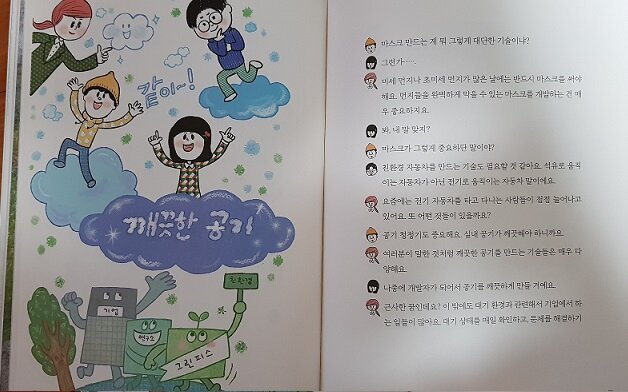 같이~!
깨끗한 공기
친환경
기업
연구소
그린피스
마스크 만드는 게 뭐 그렇게 대단한 기술이냐?
그런가…….
미세 먼지나 초미세 먼지가 많은 날에는 반드시 마스크를 써야
해요. 먼지들을 완벽하게 막을 수 있는 마스크를 개발하는 건 매
우 중요하지요.
봐, 내 말 맞지?
마스크가 그렇게 중요하단 말이야?
친환경 자동차를 만드는 기술도 필요할 것 같아요. 석유로 움직
이는 자동차가 아닌 전기로 움직이는 자동차 말이에요.
요즘에는 전기 자동차를 타고 다니는 사람들이 점점 늘어나고
있어요. 또 어떤 것들이 있을까요?
공기 청정기도 중요해요. 실내 공기가 깨끗해야 하니까요.
여러분이 말한 것처럼 깨끗한 공기를 만드는 기술들은 매우 다
양해요.
나중에 개발자가 되어서 공기를 깨끗하게 만들 거예요.
근사한 꿈인데요? 이 밖에도 대기 환경과 관련해서 기업에서 하
는 일들이 많아요. 대기 상태를 매일 확인하고, 문제를 해결하기